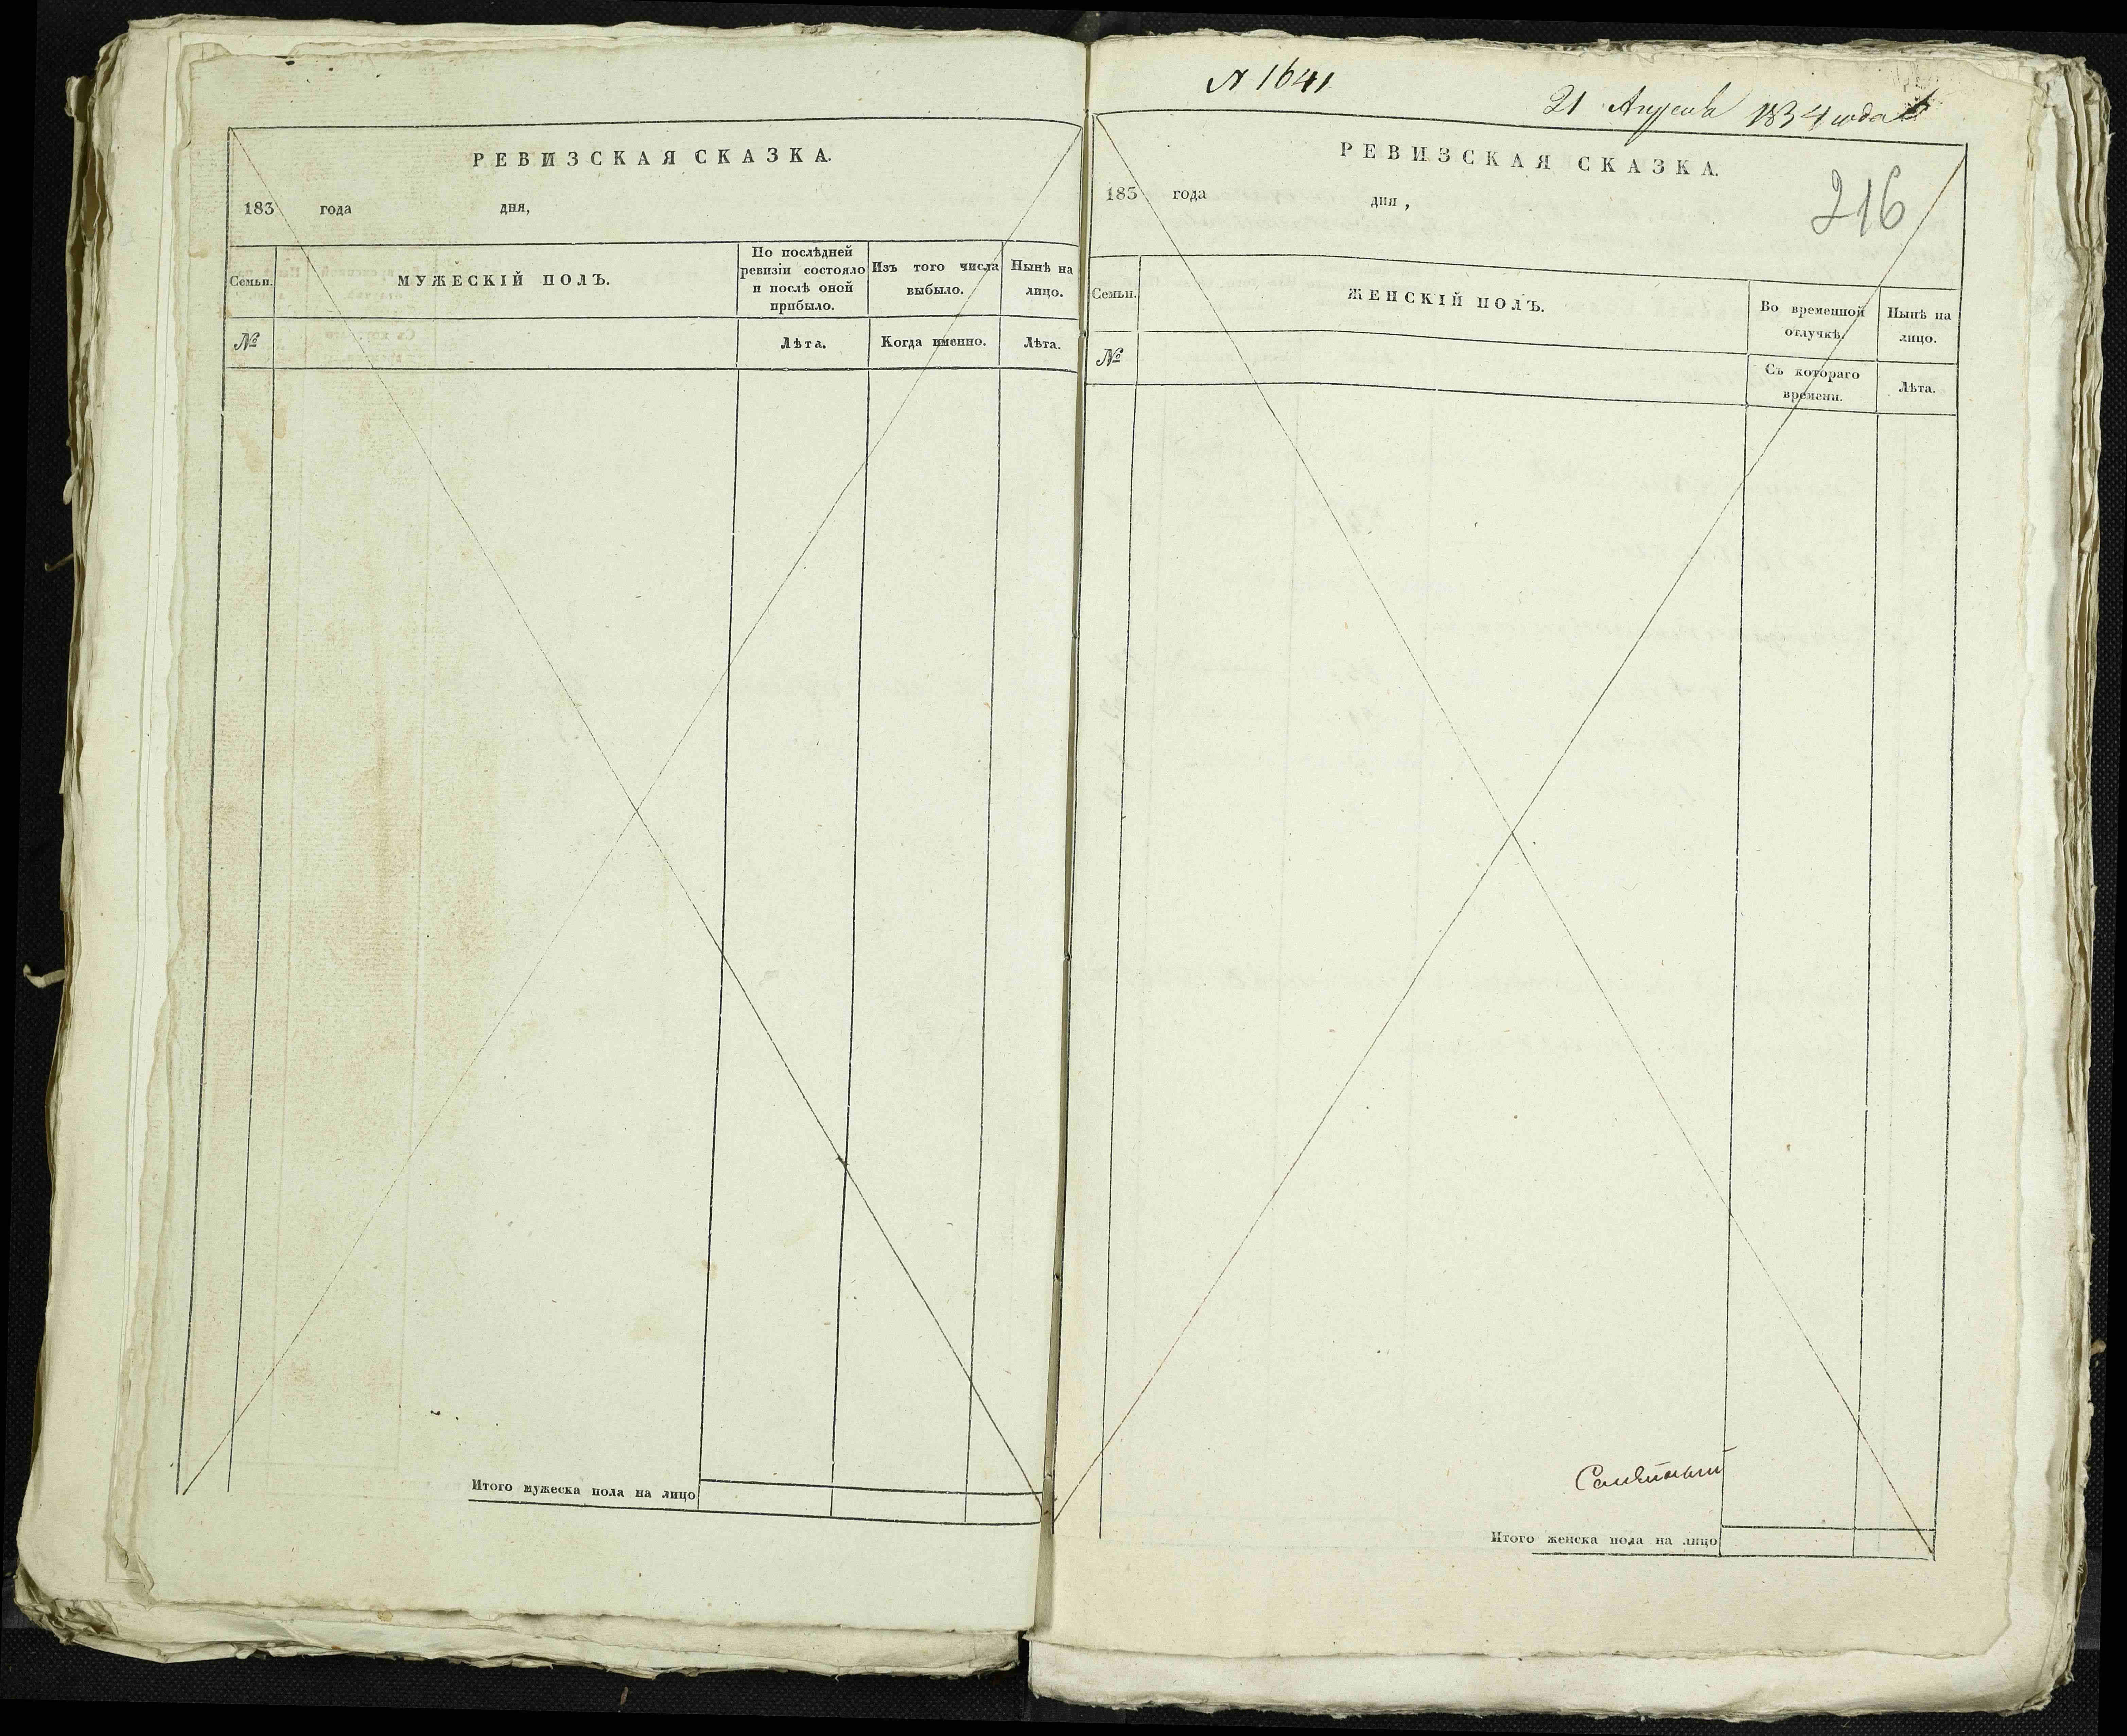 РЕВИЗСКАЯ СКАЗКА.
183 года дня,
Семьи.
МУЖЕСКІЙ ПОЛЪ.
По послѣдней
ревизіи состояло
и послѣ оной
прибыло.
Изъ того числа
выбыло.
Нынѣ на
лицо.
№
Лѣта.
Когда именно.
Лѣта.
Итого мужеска пола на лицо
№ 1641
21 Апреля 1834 года
РЕВИЗСКАЯ СКАЗКА.
183 года дня,
216
Семьи.
ЖЕНСКІЙ ПОЛЪ.
Во временной
отлучкѣ.
Нынѣ на
лицо.
№
Съ котораго
времени.
Лѣта.
Итого женска пола на лицо